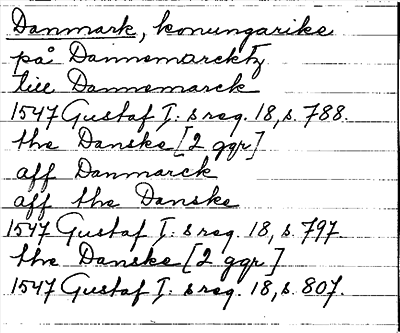 Danmark, konungarike
på Dannemarcktz
till Dannemarck
1547 Gustaf I:s reg. 18, s. 788.
the Danske [2 ggr]
aff Danmarck
aff the Danske
1547 Gustaf I:s reg. 18, s. 797.
the Danske [2 ggr]
1547 Gustaf I:s reg. 18, s. 807.